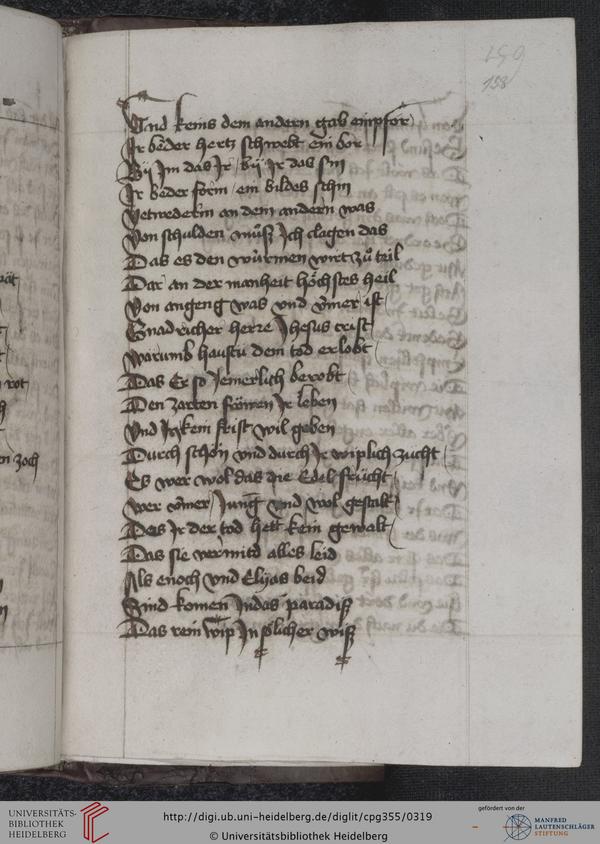 159
158
Vnd keins dem andern gab empfor
Ir beder hertz schwebt ein bor
By Im das Ir / by Ir das sin
Ir beder form / ein bildes schin
Yetwederm an dem andern was
Von schulden muͦß Ich clagen das
Das es den wuͤrmen wirt zuͦ teil
Dar an der manheit hoͤchstes heil
Von angeng was vnd ymer ist
Gnadricher herre Jhesus crist
Warumb haustu dem tod erlobt
Das Er so Jemerlich berobt
Den zarten froͤwen Ir leben
Vnd In kein frist wil geben
Durch schoͤn vnd durch Ir wiplich zucht
Es wer wol das die Edel frucht
wer ymer Jung vnd wol gestalt
Das Ir der tod hett kein gewalt
Das sie vermitd alles leid
Als enoch vnd Elyas beid
Sind komen In das paradiß
Das rein wip In solicher wiß
pät
rot
en zoch
UNIVERSITÄTS-
BIBLIOTHEK
HEIDELBERG
http://digi.ub.uni-heidelberg.de/diglit/cpg355/0319
© Universitätsbibliothek Heidelberg
gefördert von der
MANFRED
LAUTENSCHLÄGER
STIFTUNG